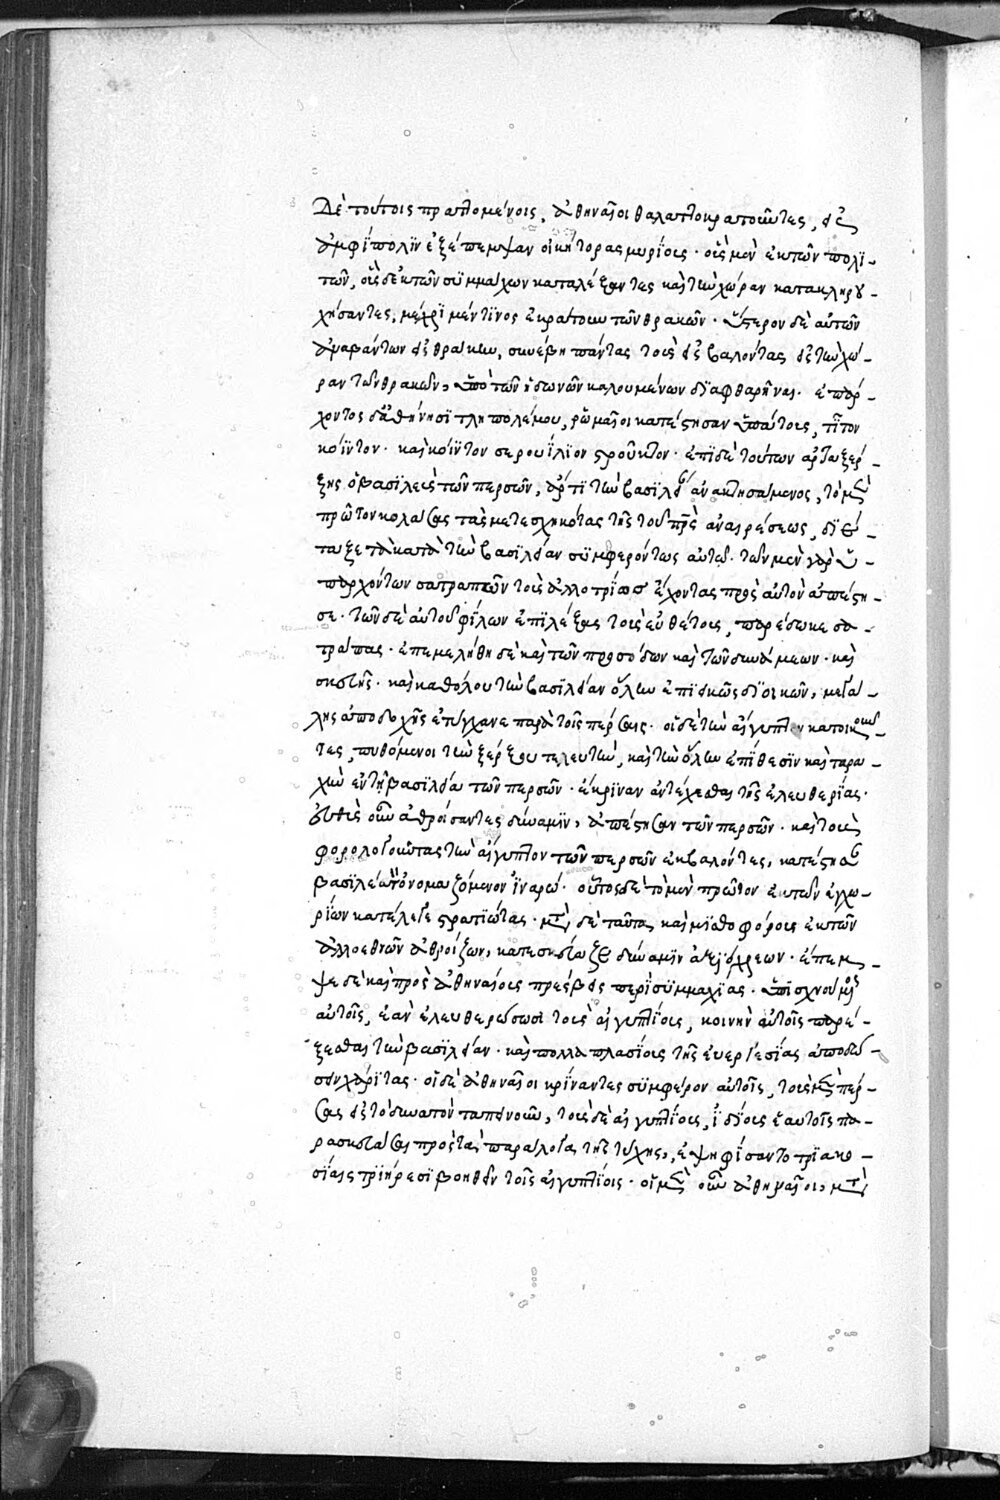 Δὲ τούτοις πραττομένοις, ἀθηναῖοι θαλαττοκρατοῦντες, εἰς
ἀμφίπολιν ἐξέπεμψαν οἰκήτορας μυρίους· οὓς μὲν ἐκ τῶν πολι-
τῶν, οὓς δ' ἐκ τῶν συμμάχων καταλέξαντες καὶ τὴν χώραν κατακληρου-
χήσαντες, μέχρι μέν τινος ἐκράτουν τῶν θρακῶν· ὕστερον δὲ αὐτῶν
ἀναβάντων εἰς θράκην, συνέβη πάντας τοὺς εἰσβαλόντας εἰς τὴν χώ-
ραν τῶν θρακῶν, ὑπὸ τῶν ἠδωνῶν καλουμένων διαφθαρῆναι. ἐπ' ἄρ-
χοντος δ' ἀθήνησι τληπολέμου, ῥωμαῖοι κατέστησαν ὑπάτους, τίτον
κοΐντον· καὶ κοΐντον σερουΐλιον στροῦκτον· ἐπὶ δὲ τούτων ἀρταξέρ-
ξης ὁ βασιλεὺς τῶν περσῶν, ἄρτι τὴν βασιλείαν ἀνακτησάμενος, τὸ μὲν
πρῶτον κολάσας τὰς μετεσχηκότας τῆς τοῦ πρς ἀναιρέσεως, διέ-
ταξε τὰ κατὰ τὴν βασιλείαν συμφερόντως αὐτῷ· τῶν μὲν γὰρ ὑ-
παρχόντων σατραπῶν τοὺς ἀλλοτρίως ἔχοντας πρὸς αὐτὸν ἀπέστη-
σε· τῶν δὲ αὐτοῦ φίλων ἐπιλέξας τοὺς εὐθέτους, παρέδωκε σα-
τραπας· ἐπεμελήθη δὲ καὶ τῶν προσόδων καὶ τῶν δυνάμεων· καὶ
σκευῆς· καὶ καθόλου τὴν βασιλείαν ὅλην ἐπιεικῶς διοικῶν, μεγά-
λης ἀποδοχῆς ἐτύγχανε παρὰ τοῖς πέρσαις· οἱ δὲ τὴν αἴγυπτον κατοικοῦν-
τες, πυθόμενοι τὴν ξέρξου τελευτὴν, καὶ τὴν ὅλην ἐπίθεσιν καὶ ταρα-
χὴν ἐν τῇ βασιλείᾳ τῶν περσῶν· ἔκριναν ἀντέχεσθαι τῆς ἐλευθερίας·
εὐθὺς οὖν ἀθροίσαντες δύναμιν, ἀπέστησαν τῶν περσῶν· καὶ τοὺς
φορολογοῦντας τὴν αἴγυπτον τῶν περσῶν ἐκβαλόντες, κατέστησαν
βασιλέα τὸν ὀνομαζόμενον ἰναρώ· οὗτος δὲ τὸ μὲν πρῶτον ἐκ τῶν ἐγχω-
ρίων κατέλεγε στρατιώτας· μετὰ δὲ ταῦτα καὶ μισθοφόρους ἐκ τῶν
ἀλλοεθνῶν ἀθροίζων, κατεσκεύαζε δύναμιν ἀξιόχρεων· ἔπεμ-
ψε δὲ καὶ πρὸς ἀθηναίους πρέσβεις περὶ συμμαχίας· ὑπισχνούμενος
αὐτοῖς, ἐὰν ἐλευθερώσωσι τοὺς αἰγυπτίους, κοινὴν αὐτοῖς παρέ-
ξεσθαι τὴν βασιλείαν· καὶ πολλαπλασίους τῆς εὐεργεσίας ἀποδώ-
σειν χάριτας· οἱ δὲ ἀθηναῖοι κρίναντες συμφέρον αὐτοῖς, τοὺς μὲν πέρ-
σας εἰς τὸ δυνατὸν ταπεινοῦν, τοὺς δὲ αἰγυπτίους, ἰδίους ἑαυτοῖς πα-
ρασκευάσαι πρὸς τὰς παραλόγους τῆς τύχης, ἐψηφίσαντο τριακο-
σίαις τριήρεσι βοηθεῖν τοῖς αἰγυπτίοις· οἱ μὲν οὖν ἀθηναῖοι, μετὰ